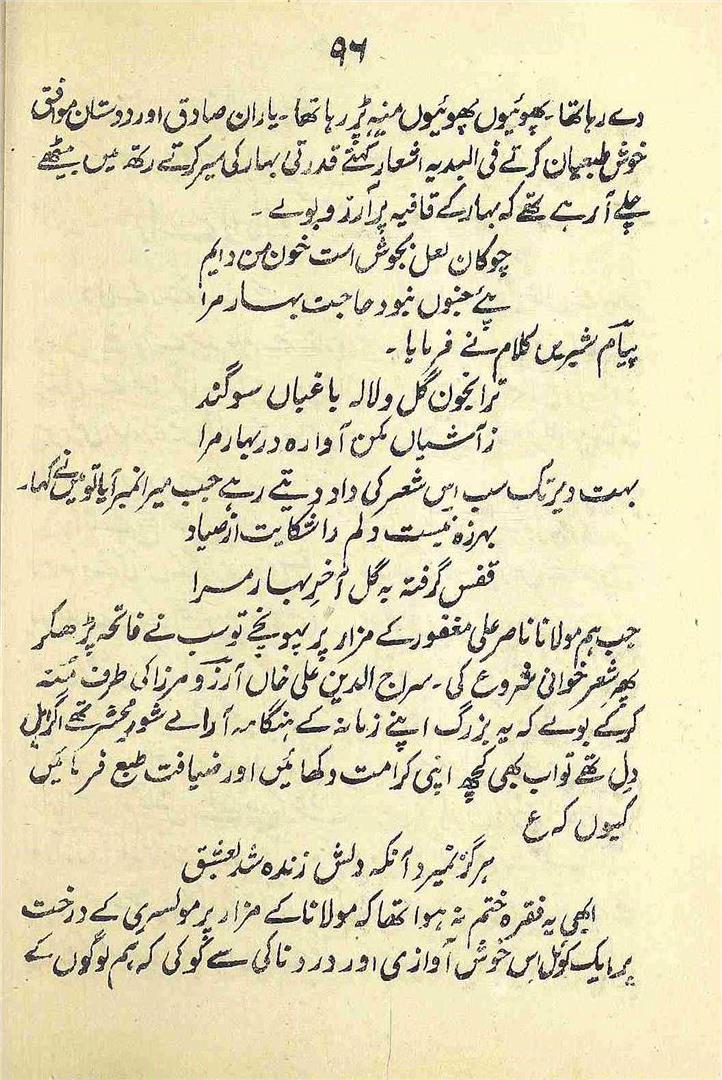 ۹۶
دے رہا تھا۔ پھوئیوں پھوئیوں منیہ پڑ رہا تھا۔ یاران صادق اور دوستان موافق
خوش طبعیاں کرتے فی البدیہ اشعار کہتے قدرتی بہار کی سیر کرتے رتھ میں بیٹھے
چلے آ رہے تھے کہ بہار کے قافیہ پر آرزو بولے۔
چوکان لعل بجوش است خون من دایم
پئے جنوں نبود حاجت بہار مرا
پیام شیریں کلام نے فرمایا۔
ترا بخون گل و لالہ باغباں سوگند
ز آشیاں مکن آوارہ در بہار مرا
بہت دیر تک سب اس شعر کی داد دیتے رہے جب میرا نمبر آیا تو میں نے کہا۔
بہرزہ نیست دلم را شکایت از صیاد
قفس گرفتہ بہ گل آخرِ بہار مرا
جب ہم مولانا ناصر علی مغفور کے مزار پر پہونچے تو سب نے فاتحہ پڑھکر
پھر شعر خوانی شروع کی۔ سراج الدین علی خاں آرزو مرزا کی طرف مُنہ
کر کے بولے کہ یہ بزرگ اپنے زمانہ کے ہنگامہ آرائے شورِ محشر تھے اگر اہلِ
دِل تھے تو اب بھی کچھ اپنی کرامت دکھائیں اور ضیافت طبع فرمائیں
کیوں کہ ع
ہرگز نمیرد آنکہ دلش زندہ شد بعشق
ابھی یہ فقرہ ختم نہ ہوا تھا کہ مولانا کے مزار پر مولسری کے درخت
پر ایک کوئل اس خوش آوازی اور دردناکی سے کُوکی کہ ہم لوگوں کے